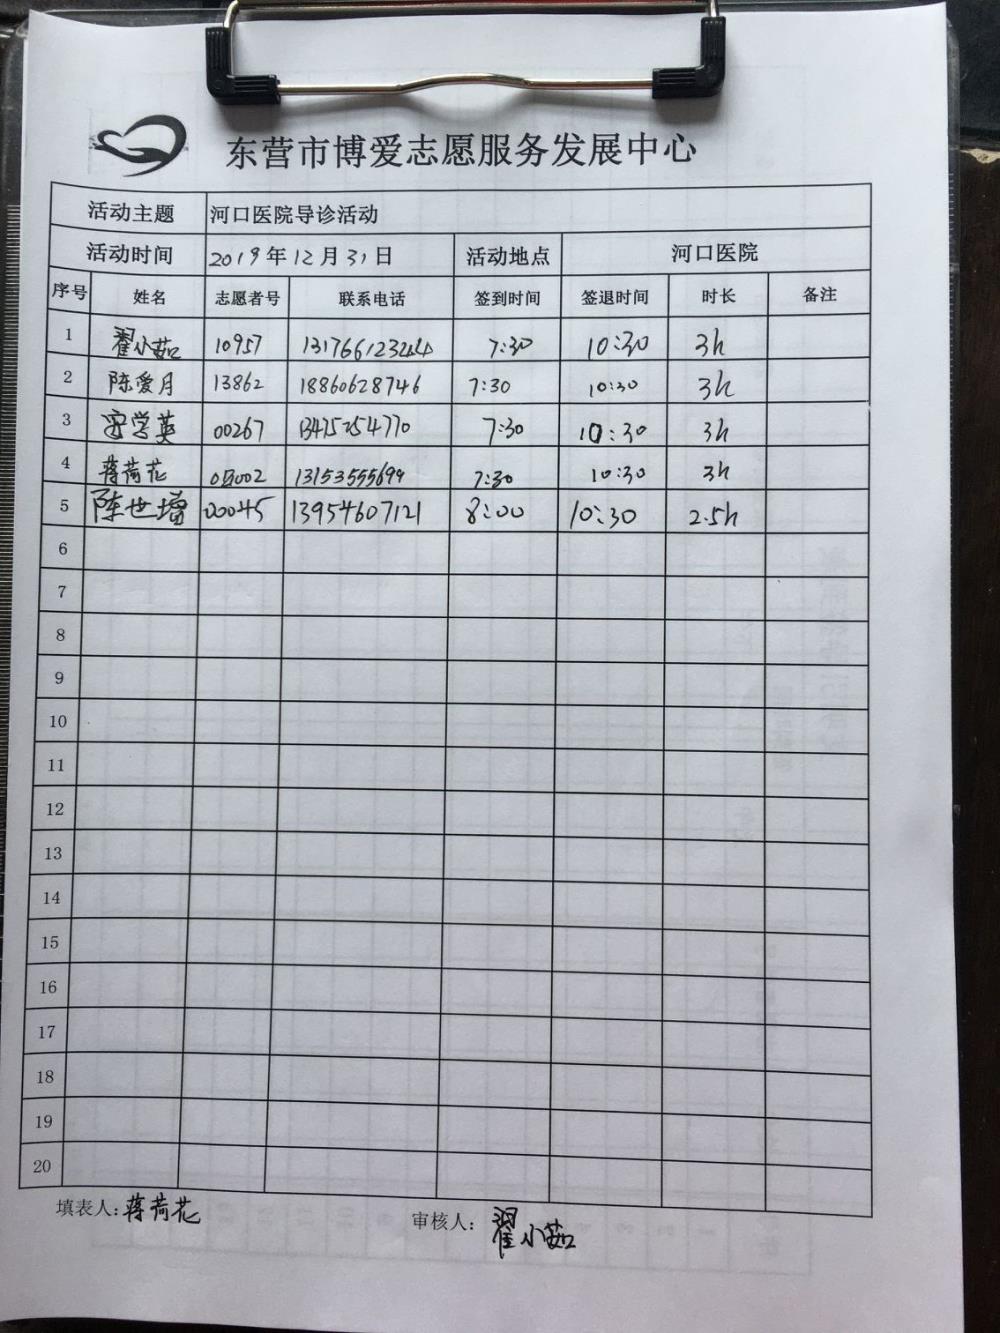 东营市博爱志愿服务发展中心
活动主题 河口医院导诊活动
活动时间 2019年12月31日 活动地点 河口医院
序号 姓名 志愿者号 联系电话 签到时间 签退时间 时长 备注
1 翟小茹 10957 13176612344 7:30 10:30 3h
2 陈爱月 13862 18860628746 7:30 10:30 3h
3 学英 00267 13475254770 7:30 10:30 3h
4 蒋荷花 05002 13153555699 7:30 10:30 3h
5 陈世增 00045 13954607121 8:00 10:30 2.5h
6
7
8
9
10
11
12
13
14
15
16
17
18
19
20
填表人:蒋荷花 审核人: 翟小茹